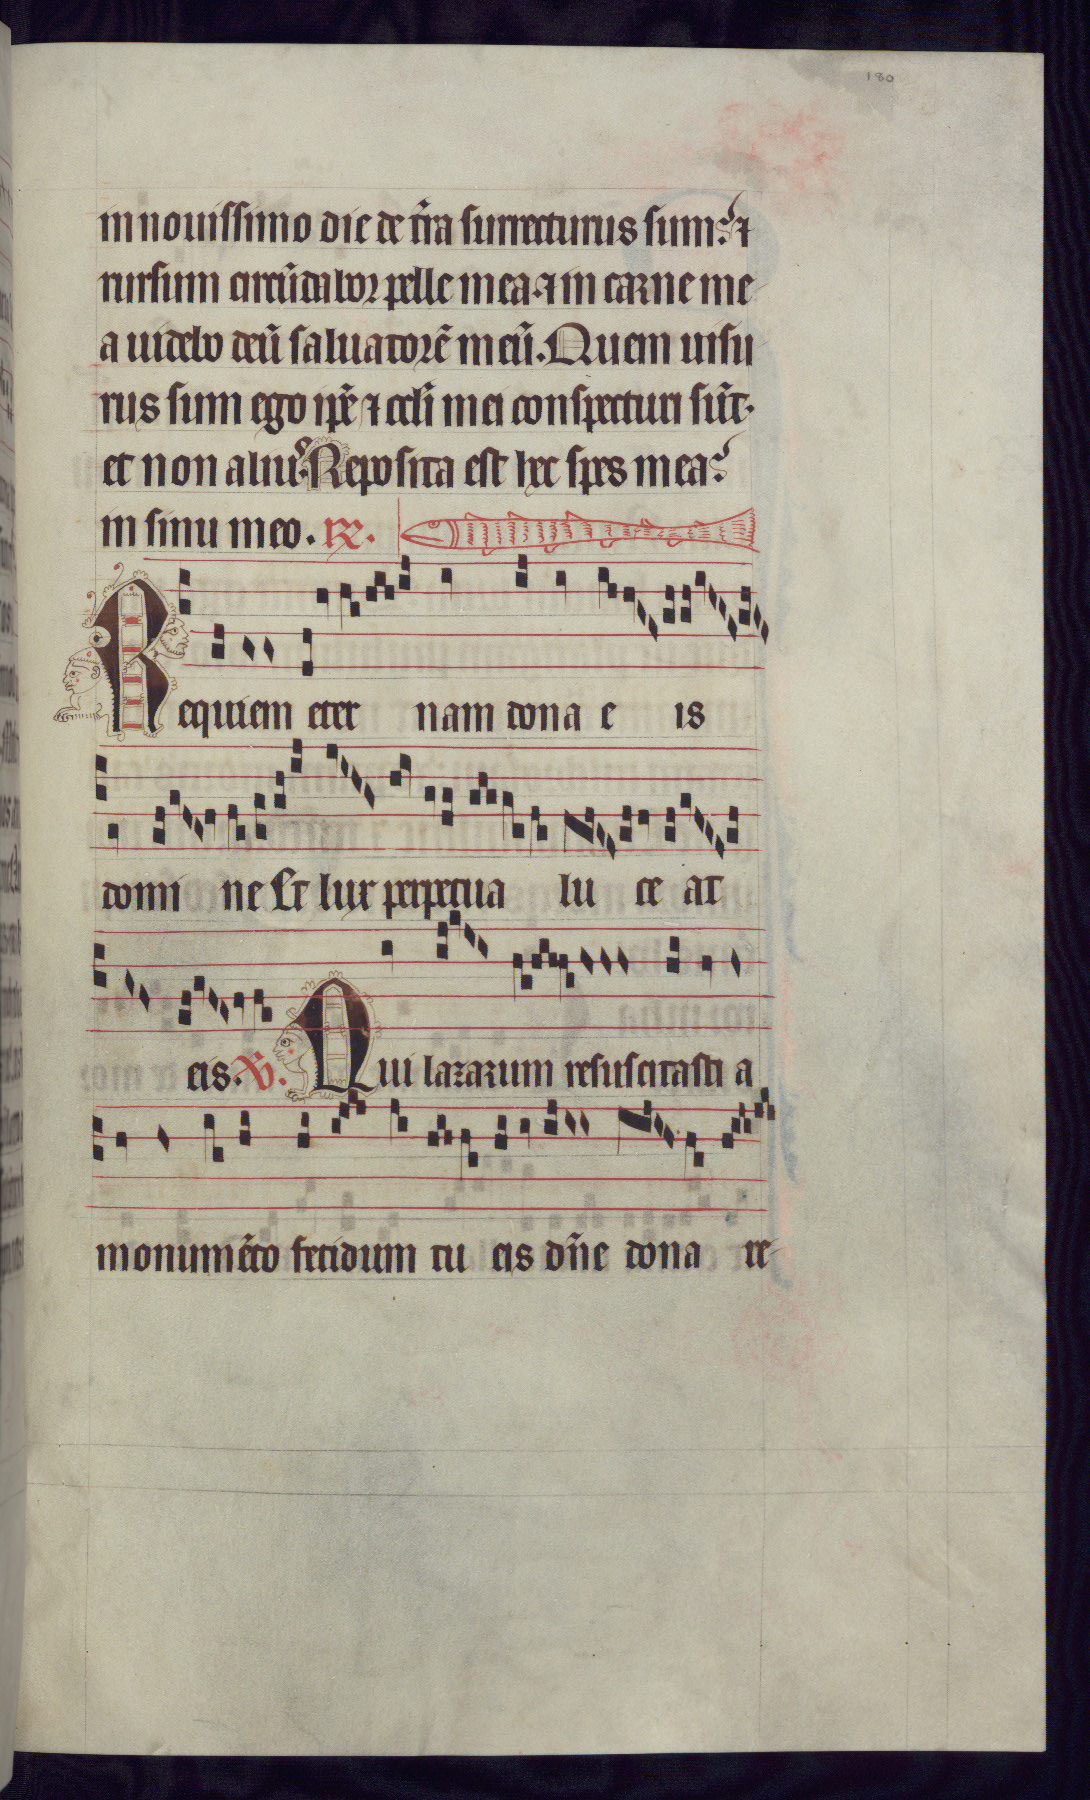 180
in nouissimo die de t̃ra surrecturus sum: ⁊
rursum circũdabor pelle mea ⁊ in carne me
a uidebo deũ saluatorẽ meũ. Quem uisu
rus sum ego ip̃e ⁊ oc̃li mei conspecturi sũt.
et non aliu᷒. Reposita est hec spes mea:
in sinu meo. ℟.
Requiem eter nam dona e is
domi ne Et lux perpetua lu ce at
eis. ℣. Qui lazarum resuscitasti a
monumẽto fetidum tu eis dñe dona re